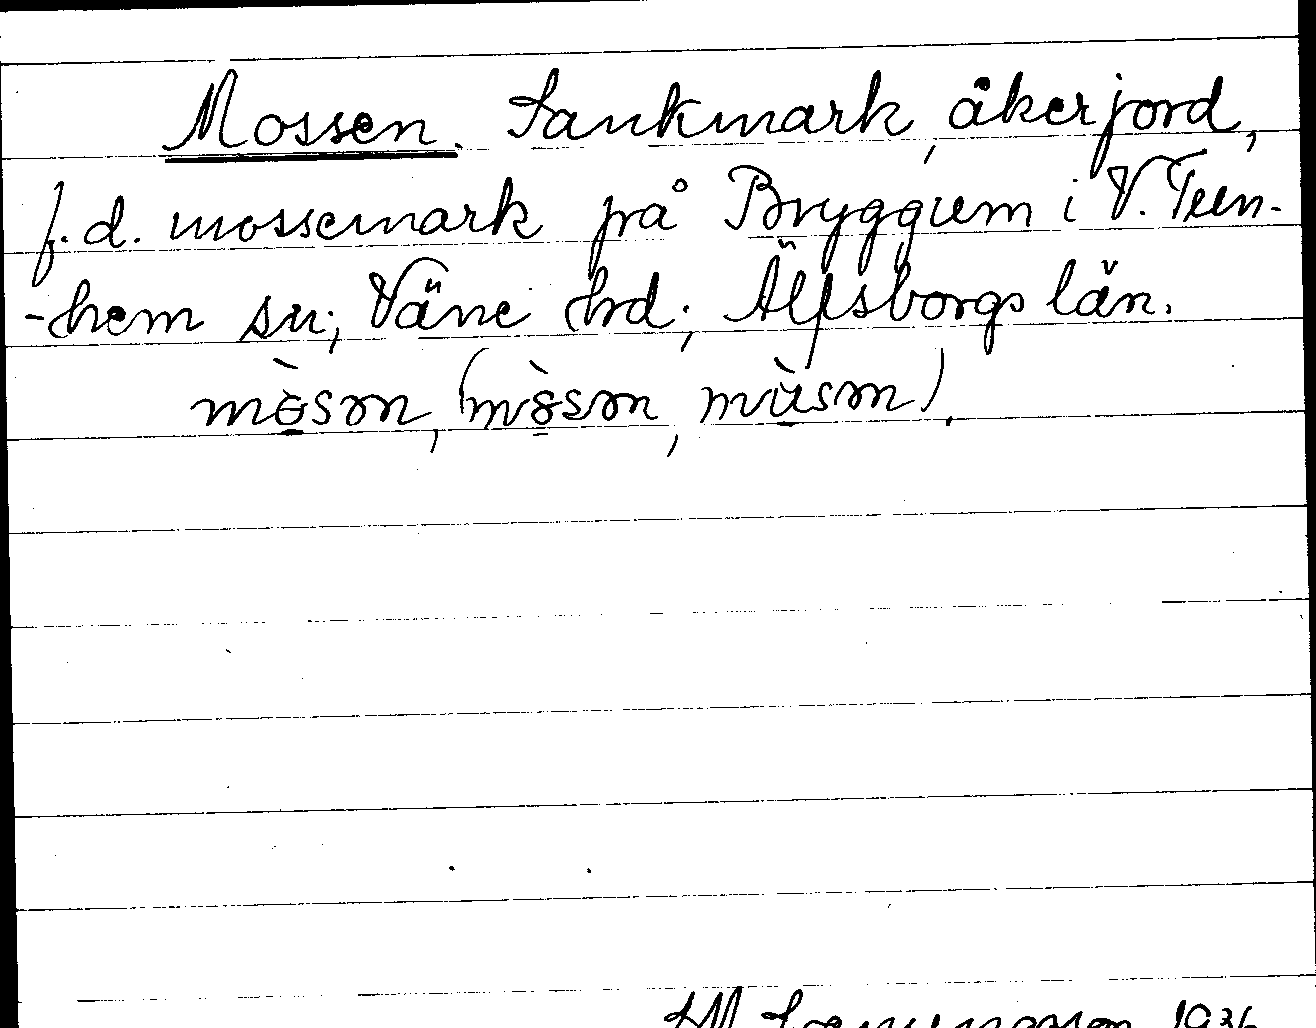 Mossen. Sankmark, åkerjord,
f.d. mossemark på Bryggum i V. Tun-
-hem sn; Väne hrd; Älfsborgs län.
mòsən, (mòsən, mùsən).
1936